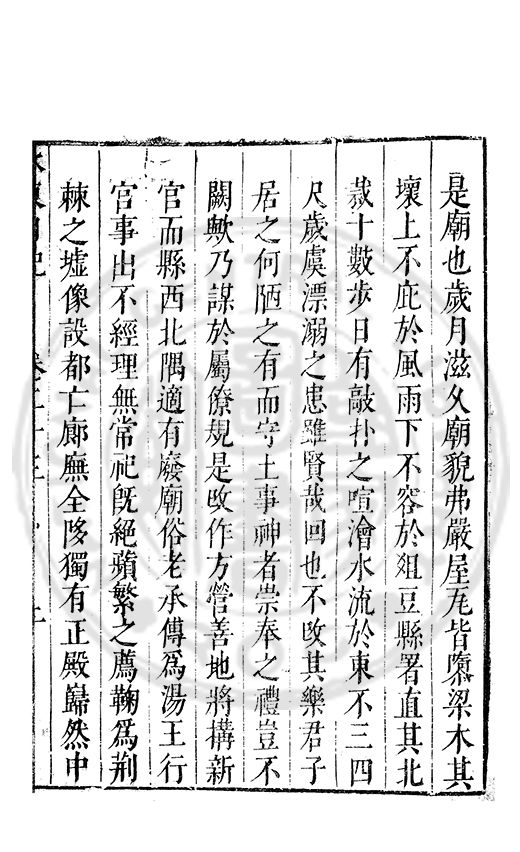 是廟也歲月滋久廟貌弗嚴屋瓦皆隳梁木其
壞上不庇於風雨下不容於俎豆縣署直其北
裁十數步日有敲朴之喧澮水流於東不三四
尺歲虞漂溺之患雖賢哉回也不改其樂君子
居之何陋之有而守土事神者崇奉之禮豈不
闕歟乃謀於屬僚規是改作方營善地將構新
官而縣西北隅適有廢廟俗老承傳爲湯王行
宮事出不經理無常祀旣絕蘋蘩之薦鞠爲荆
棘之墟像設都亡廊廡全陊獨有正殿巋然中